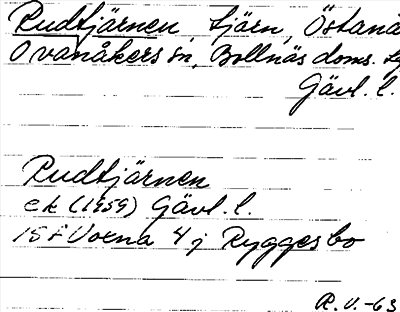 Rudtjärnen tjärn, Östanå
Ovanåkers sn, Bollnäs doms.
Gävl. l.
Rudtjärnen
ek (1959) Gävl. l.
15 F Voxna 4 j Ryggesbo
R. V. -63